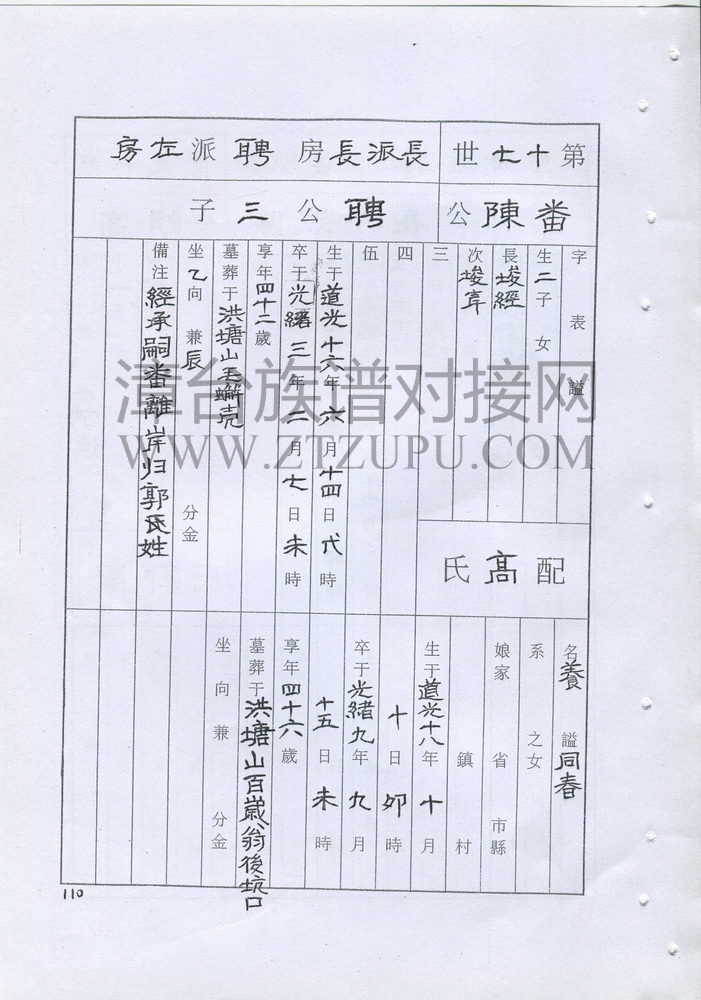 第十七世
長派長房聘派左房
番陳公
聘公三子
字表諡
生二子女
長堎經
次堎韋
三
四
伍
生于道光十六年六月十四日代時
卒于光緒三年二月七日未時
享年四十二歲
墓葬于洪塘山毛蠏壳
坐乙向兼辰分金
備注經承嗣番離岸归郭氏姓
配高氏
名養諡同春
系之女
娘家省市縣
鎮村
生于道光十八年十月
十日卯時
卒于光緒九年九月
十五日未時
享年四十六歲
墓葬于洪塘山百歲翁後坑口
坐向兼分金
110
漳台族谱对接网
WWW.ZTZUPU.COM